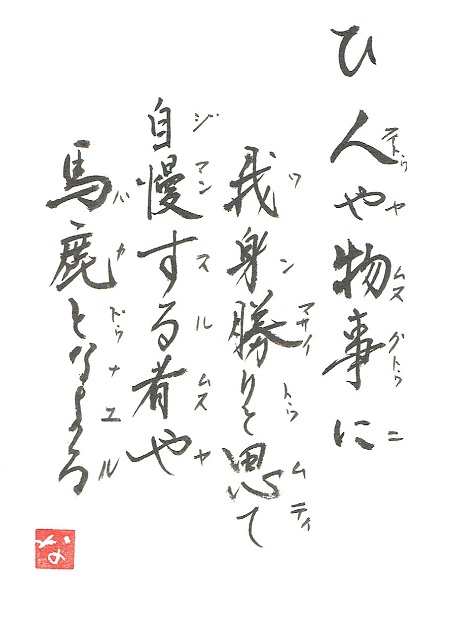 ひ
人や物事に
ヤ ムス グトゥ ニ
我身勝りと思て
ワン マサイ トゥ ムティ
自慢する者や
ジマン スル ムス ヤ
馬鹿となよる
バカ ドゥ ナユル
な